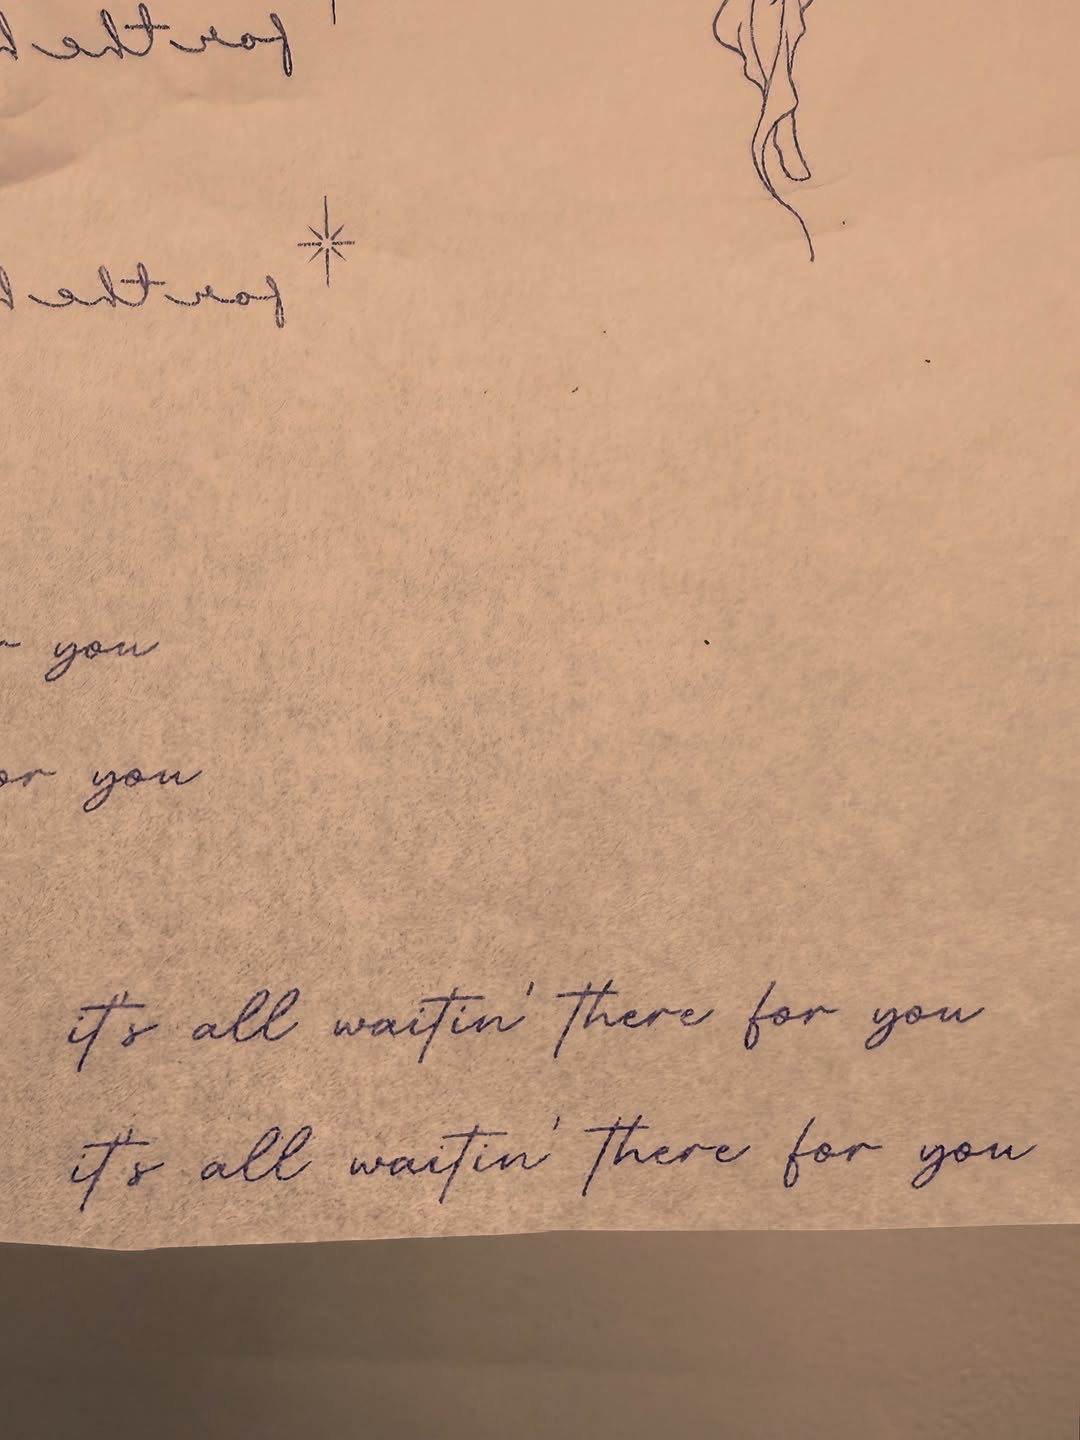 for the
for the
you
or you
it's all waitin' there for you
it's all waitin' there for you